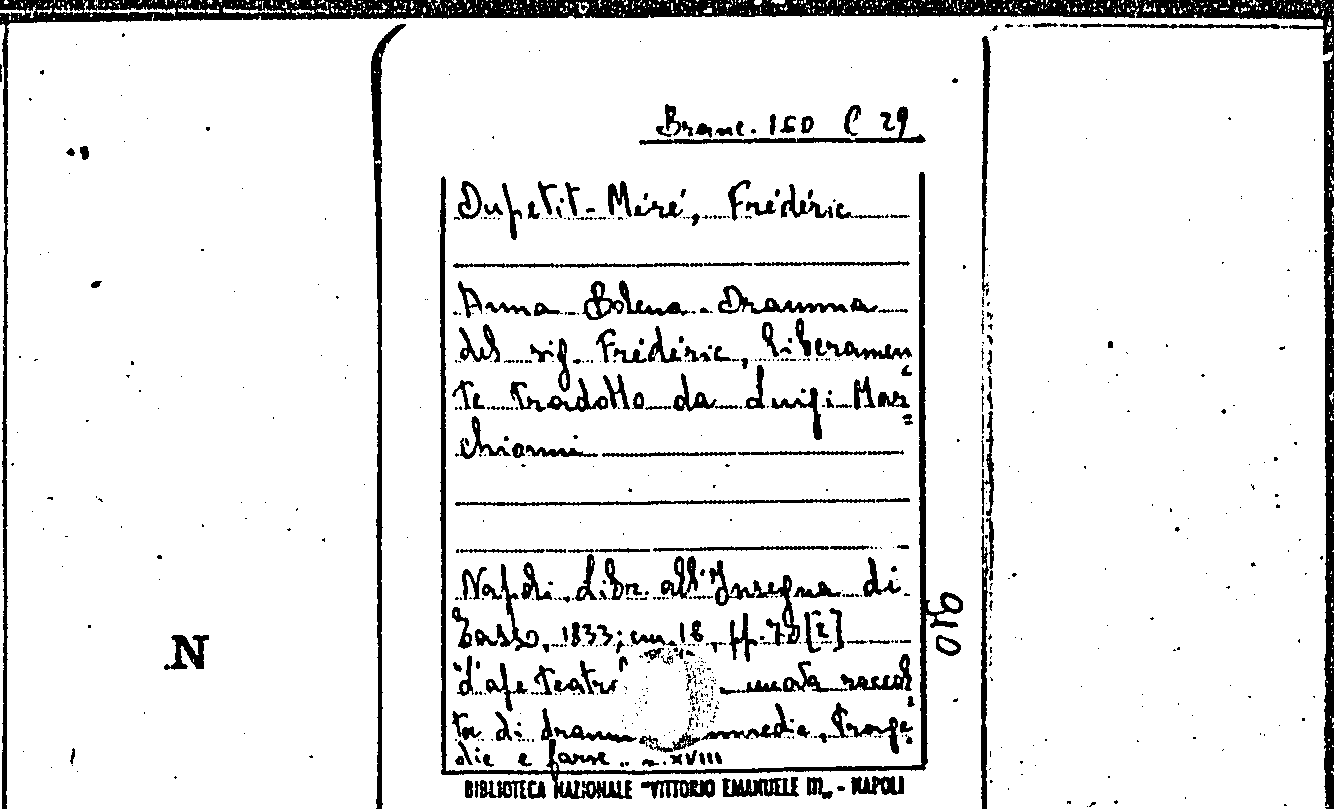 Branc. 150 C 29
Dupetit-Méré, Frédéric
Anna Bolena. Dramma
del sig. Frédéric, liberamen
te tradotto da Luigi Mar
chionni
Napoli, Libr. all'Insegna di
Tasso, 1833; cm. 18, pp. 78 [2]
"L'ape teatr nuova raccol
ta di dramm commedie, trage
die e farse" n. XVIII
BIBLIOTECA NAZIONALE "VITTORIO EMANUELE III" - NAPOLI
910
N